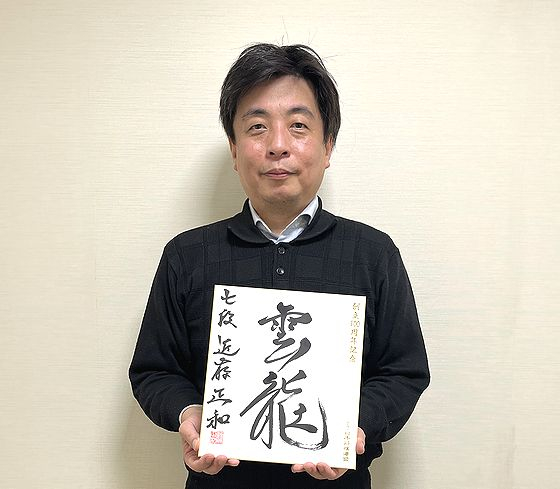 創立100周年記念
雲龍
七段 近藤正和